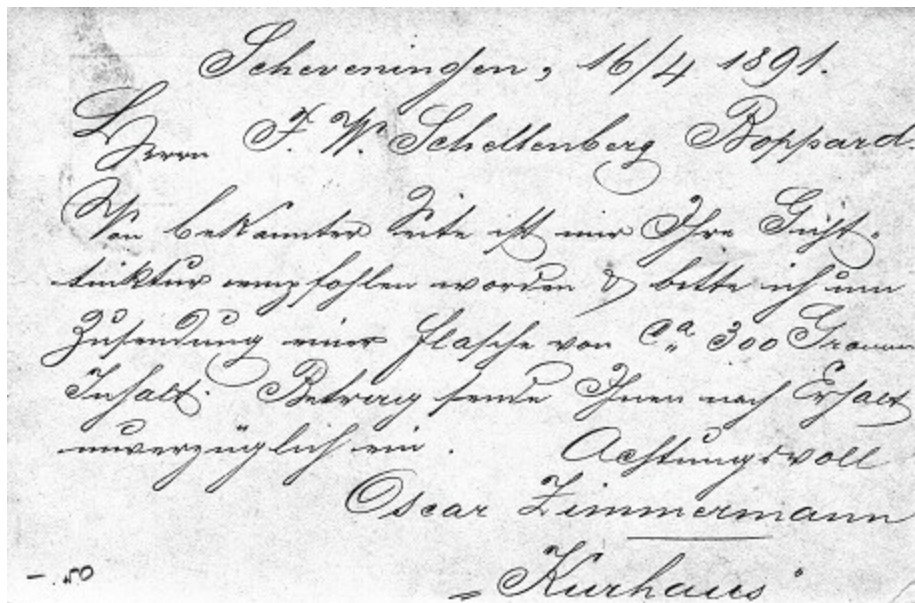 Scheveningen, 16/4 1891.
Herrn F. W. Schellenberg Boppard.
Von bekannter Seite ist mir Ihre Gicht-
tinktur empfohlen worden & bitte ich um
Zusendung einer Flasche von ca 300 Gramm
Inhalt. Betrag sende Ihnen nach Erhalt
unverzüglich ein. Achtungsvoll
Oscar Zimmermann
„Kurhaus"
-.50